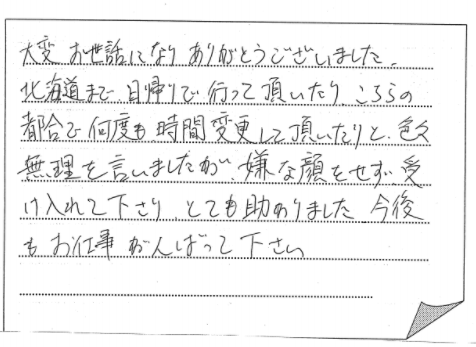 大変 お世話になり ありがとうございました。
北海道まで 日帰りで 行って 頂いたり、こちらの
都合で 何度も 時間 変更して 頂いたりと、色々
無理を 言いましたが、嫌な顔をせず 受
け入れて 下さり、とても助かりました。今後
も お仕事 がんばって 下さい